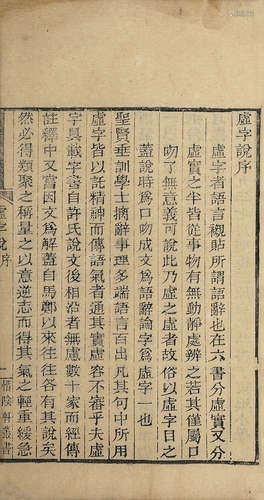 虛字說序
虛字者語言襯貼所謂語辭也在六書分虛實又分
虛實之半皆從事物有無動靜處辨之若其僅屬口
吻了無意義可說此乃虛之虛者故俗以虛字目之
蓋說時為口吻成文為語辭論字為虛字一也
聖賢垂訓學士摛辭事理多端語言百出凡其句中所用
虛字皆以託精神而傳語氣者通其實虛容不審乎夫虛
字具載字書自許氏說文後相沿者無慮數十家而經傳
註釋中又嘗因文為解蓋自馬鄭以來往往各有其說矣
然必得類聚之稱量之以意逆志而得其氣之輕重緩急
虛字說 序
惜陰軒叢書